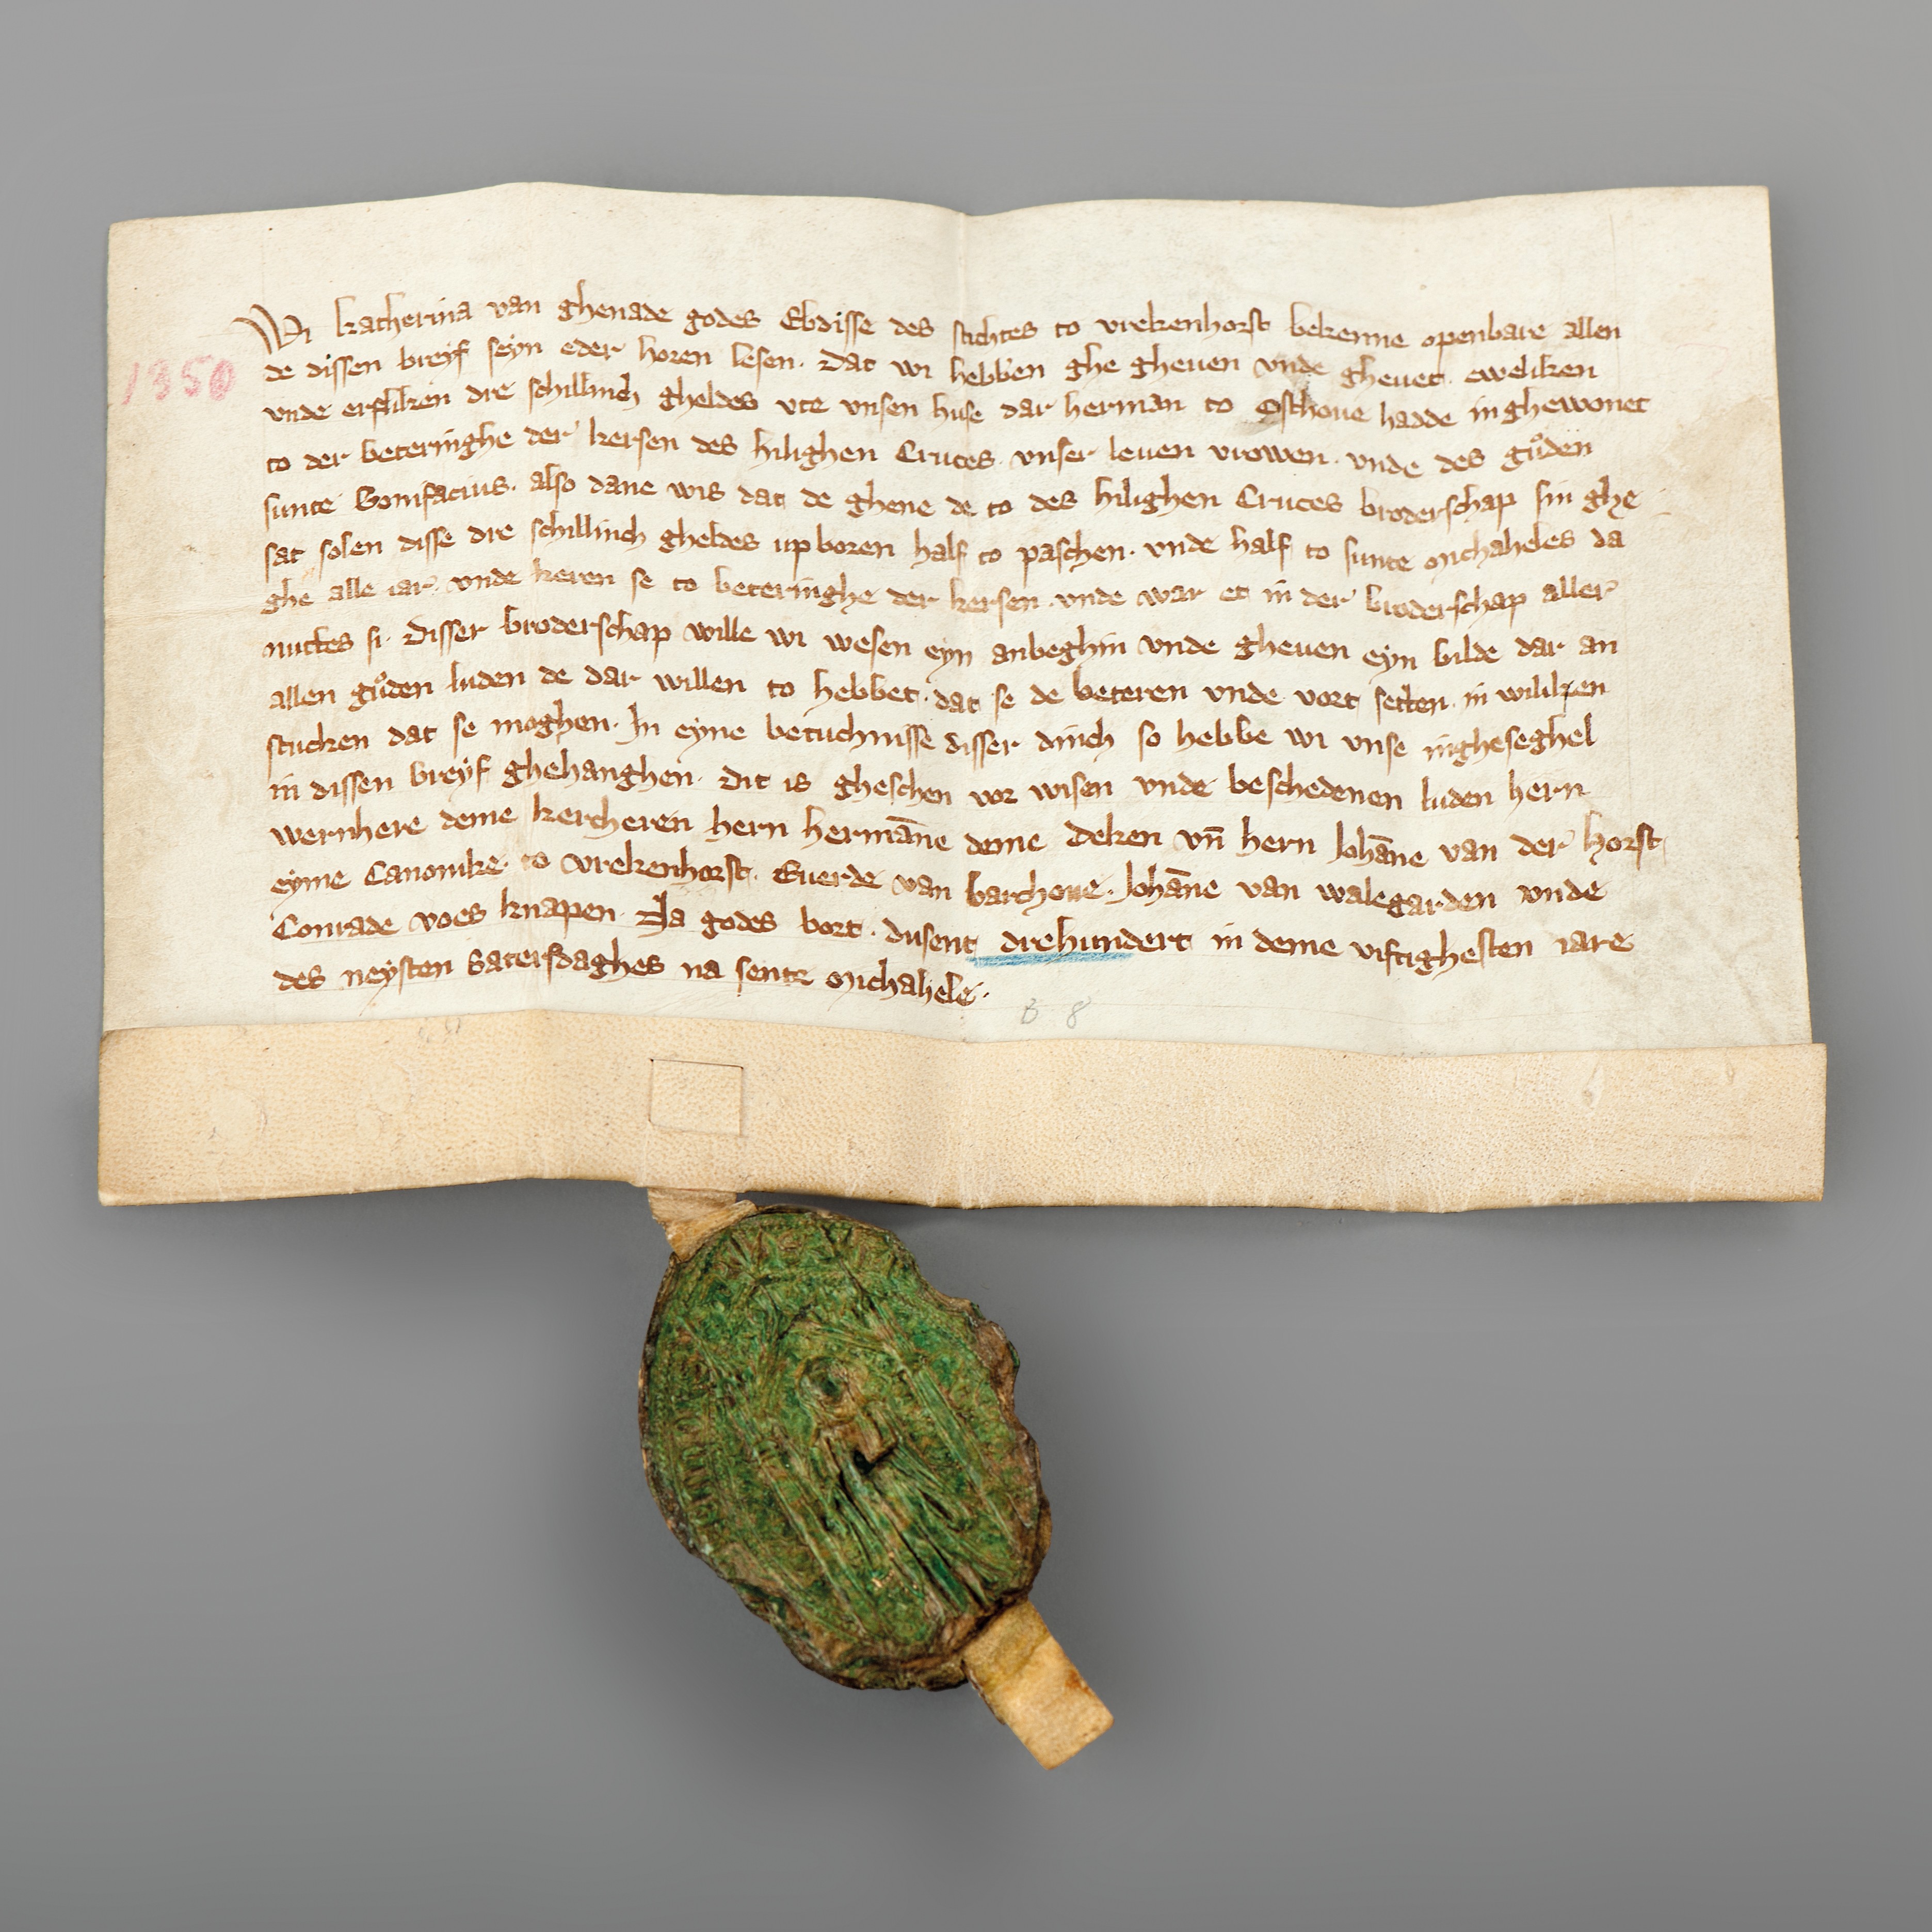 Wi katherina van ghenade godes Ebdisse des stichtes to vrekenhorst bekenne openbare allen
1350
de dissen breyf seyn eder horen lesen. Dat wi hebben ghe gheuen vnde gheuet. eweliken
vnde erfliken dre schillinch gheldes vte vnsen huse dar herman to Osthoue hadde in ghewonet
to der beteringhe der kersen des hilighen Cruces. vnser leuen vrowen. vnde des gůden
sunte Bonifacius. also dane wis dat de ghene de to des hilighen Cruces broderschap sin ghe
sat solen disse dre schillinch gheldes up boren half to paschen. vnde half to sunte michaheles da
ghe alle iar. vnde keren se to beteringhe der kersen. vnde war et in der broderschap aller
nuttes si. Disser broderschap wille wi wesen eyn anbeghin vnde gheuen eyn bilde dar an
allen gůden luden de dar willen to hebbet. dat se de beteren vnde vort setten. in wiliken
stucken dat se moghen. In eyne betuchnisse disser dinch so hebbe wi vnse ingheseghel
in dissen breyf ghehanghen. Dit is gheschen vor wisen vnde beschedenen luden hern
wernhere deme kercheren hern hermāne deme deken vn̄ hern Johāne van der horst
eyme Canonike to vrekenhorst. Euerde van barchoue. Johāne van walegarden vnde
Conrade voes knapen. Na godes bort. dusent drehundert in deme viftighesten iare
des neysten Satersdaghes na sente michahele.
B 8